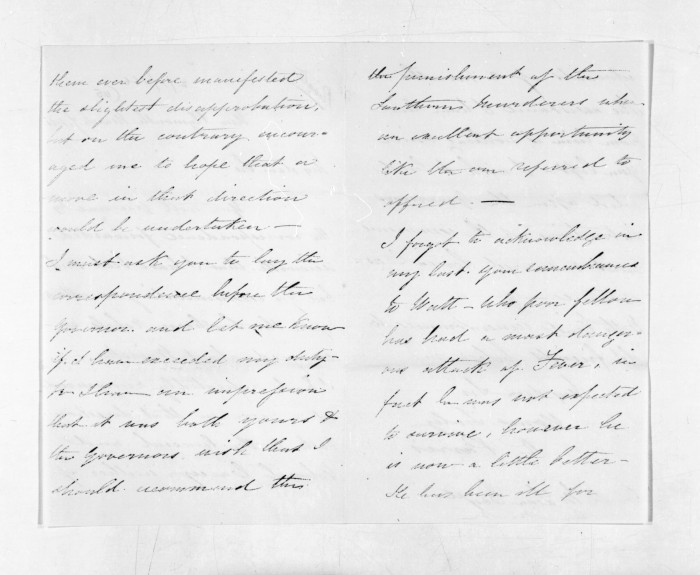 them ever before manifested
the slightest disapprobation,
but on the contrary encour-
aged me to hope that a
move in that direction
would be undertaken —
I must ask you to lay the
correspondence before the
Governor and let me know
if I have exceeded my duty -
for I have an impression
that it was both yours &
the Governors wish that I
should recommend this
the punishment of the
Southern murderers when
an excellent opportunity
like the one referred to
offered. —
I forgot to acknowledge in
my last your remembrances
to Watt - who poor fellow
has had a most danger-
ous attack of Fever, in
fact he was not expected
to survive, however he
is now a little better -
He has been ill for